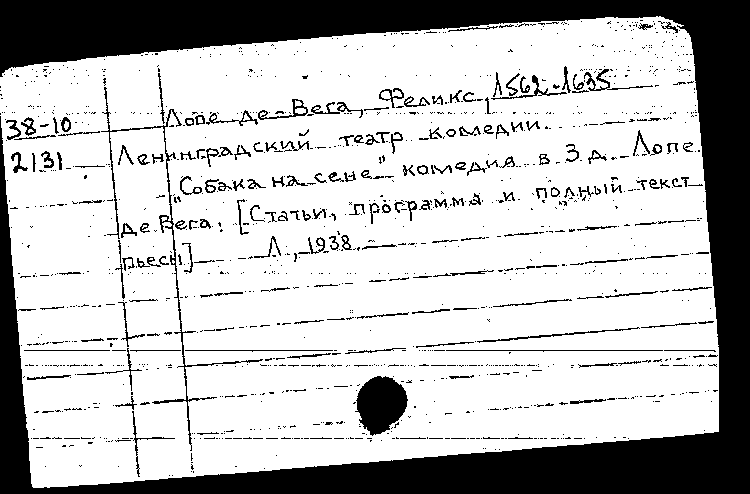 38-10
2131
Лопе де-Вега, Феликс, 1562-1635
Ленинградский театр комедии.
„Собака на сене" комедия в 3 д. Лопе
де Вега. [Статьи, программа и полный текст
пьесы] Л., 1938.